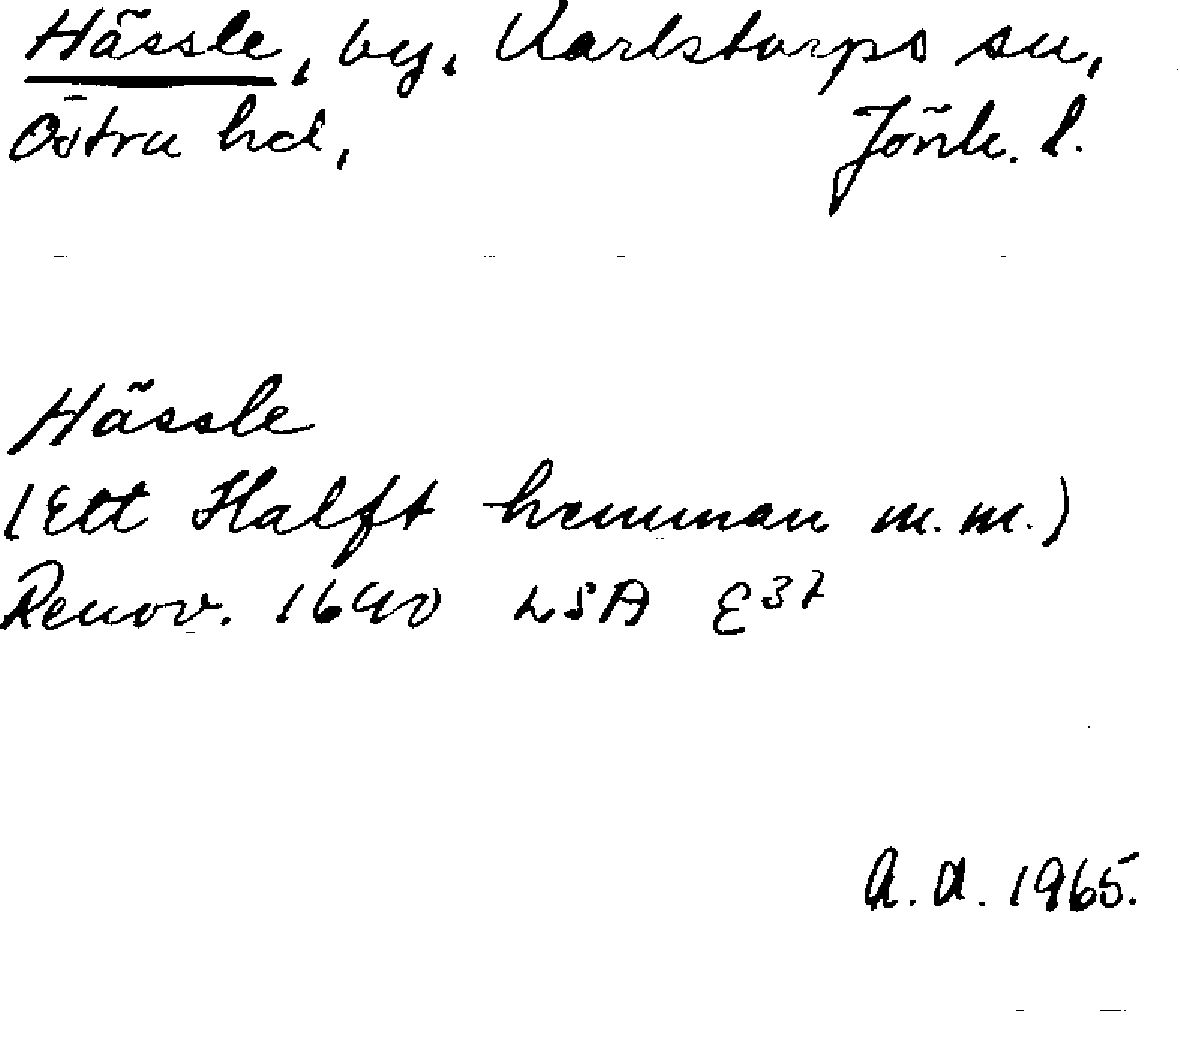 Hässle, by, Karlstorps sn,
Östra hd, Jönk. l.
Hässle
(Ett Halft hemman m.m.)
Renov. 1690 LSA E37
A. A. 1965.